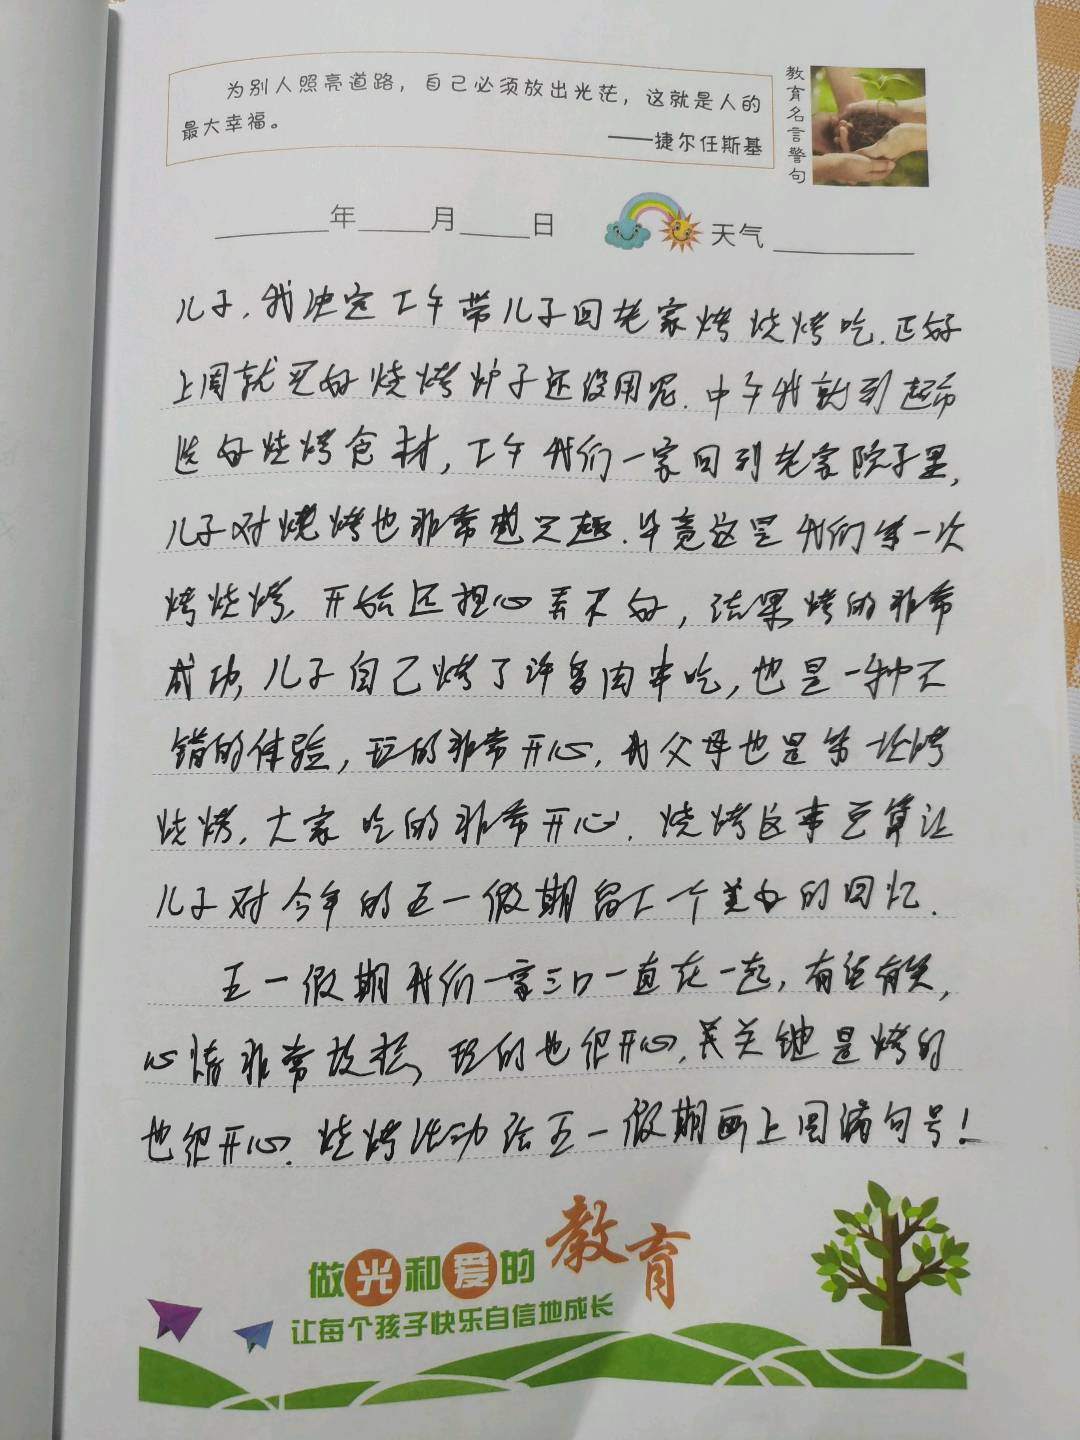 为别人照亮道路，自己必须放出光芒，这就是人的
最大幸福。
——捷尔任斯基
教育名言警句
年 月 日 天气
儿子，我决定下午带儿子回老家烤烧烤吃.正好
上周就买的烧烤炉子还没用呢.中午我就到超市
选的烧烤食材，下午我们一家回到老家院子里，
儿子对烧烤也非常感兴趣.毕竟这是我们第一次
烤烧烤，开始还担心弄不好，结果烤的非常
成功，儿子自己烤了许多肉串吃，也是一种不
错的体验，玩的非常开心，我父母也是第一次烤
烧烤，大家吃的非常开心.烧烤这事总算让
儿子对今年的五一假期留下一个美好的回忆.
五一假期我们一家三口一直在一起，有说有笑，
心情非常放松，玩的也很开心，关键是烤的
也很开心.烧烤活动给五一假期画上圆满句号！
做光和爱的教育
让每个孩子快乐自信地成长